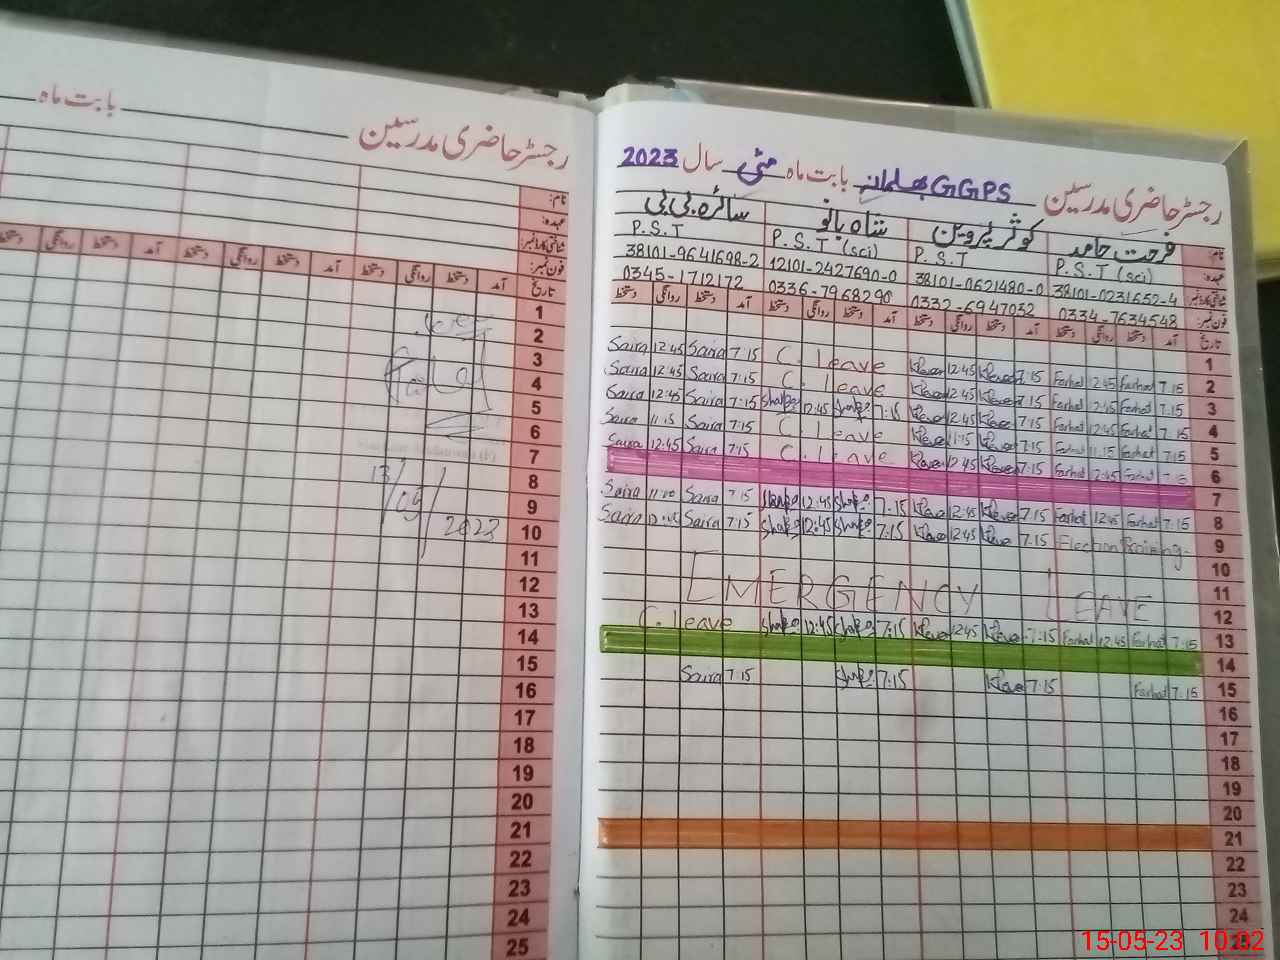 بابت ماہ
رجسٹر حاضری مدرسین
نام:
عہدہ:
شناختی کارڈ نمبر:
فون نمبر:
تاریخ آمد دستخط روانگی دستخط آمد دستخط روانگی دستخط آمد دستخط روانگی دستخط
1
2
3
4
5
6
7
8
9
10
11
12
13
14
15
16
17
18
19
20
21
22
23
24
25
13/05/2023
رجسٹر حاضری مدرسین GGPS بھلمانہ بابت ماہ مئی سال 2023
نام: فرحت حامد کوثر پروین شاہ بانو سائرہ بی بی
عہدہ: P.S.T (sci) P.S.T P.S.T (sci) P.S.T
شناختی کارڈ نمبر: 38101-0231652-4 38101-0621480-0 12101-2427690-0 38101-9641698-2
فون نمبر: 0334-7634548 0332-6947032 0336-7968290 0345-1712172
تاریخ آمد دستخط روانگی دستخط آمد دستخط روانگی دستخط آمد دستخط روانگی دستخط آمد دستخط روانگی دستخط
1
2 7:15 Farhat 12:45 Farhat 7:15 12:45 C. leave 7:15 Saira 12:45 Saira
3 7:15 Farhat 12:45 Farhat 7:15 12:45 C. leave 7:15 Saira 12:45 Saira
4 7:15 Farhat 12:45 Farhat 7:15 12:45 7:15 12:45 7:15 Saira 12:45 Saira
5 7:15 Farhat 11:15 Farhat 7:15 11:15 C. leave 7:15 Saira 11:15 Saira
6 7:15 Farhat 12:45 Farhat 7:15 12:45 C. leave 7:15 Saira 12:45 Saira
7
8 7:15 Farhat 12:45 Farhat 7:15 12:45 7:15 12:45 7:15 Saira 11:00 Saira
9 Election Training 7:15 12:45 7:15 12:45 7:15 Saira Saira
10
11 EMERGENCY LEAVE
12
13 7:15 Farhat 12:45 Farhat 7:15 12:45 7:15 12:45 C. leave
14
15 7:15 Farhat 7:15 7:15 7:15 Saira
16
17
18
19
20
21
22
23
24
15-05-23 10:02